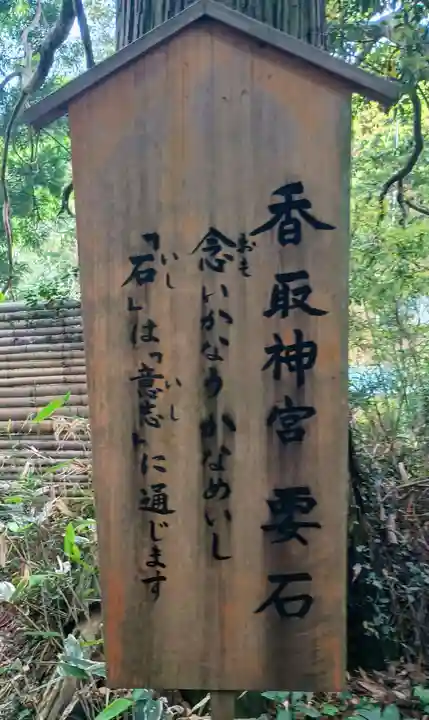 香取神宮 要石
念いかなうかなめいし
「石」は「意志」に通じます